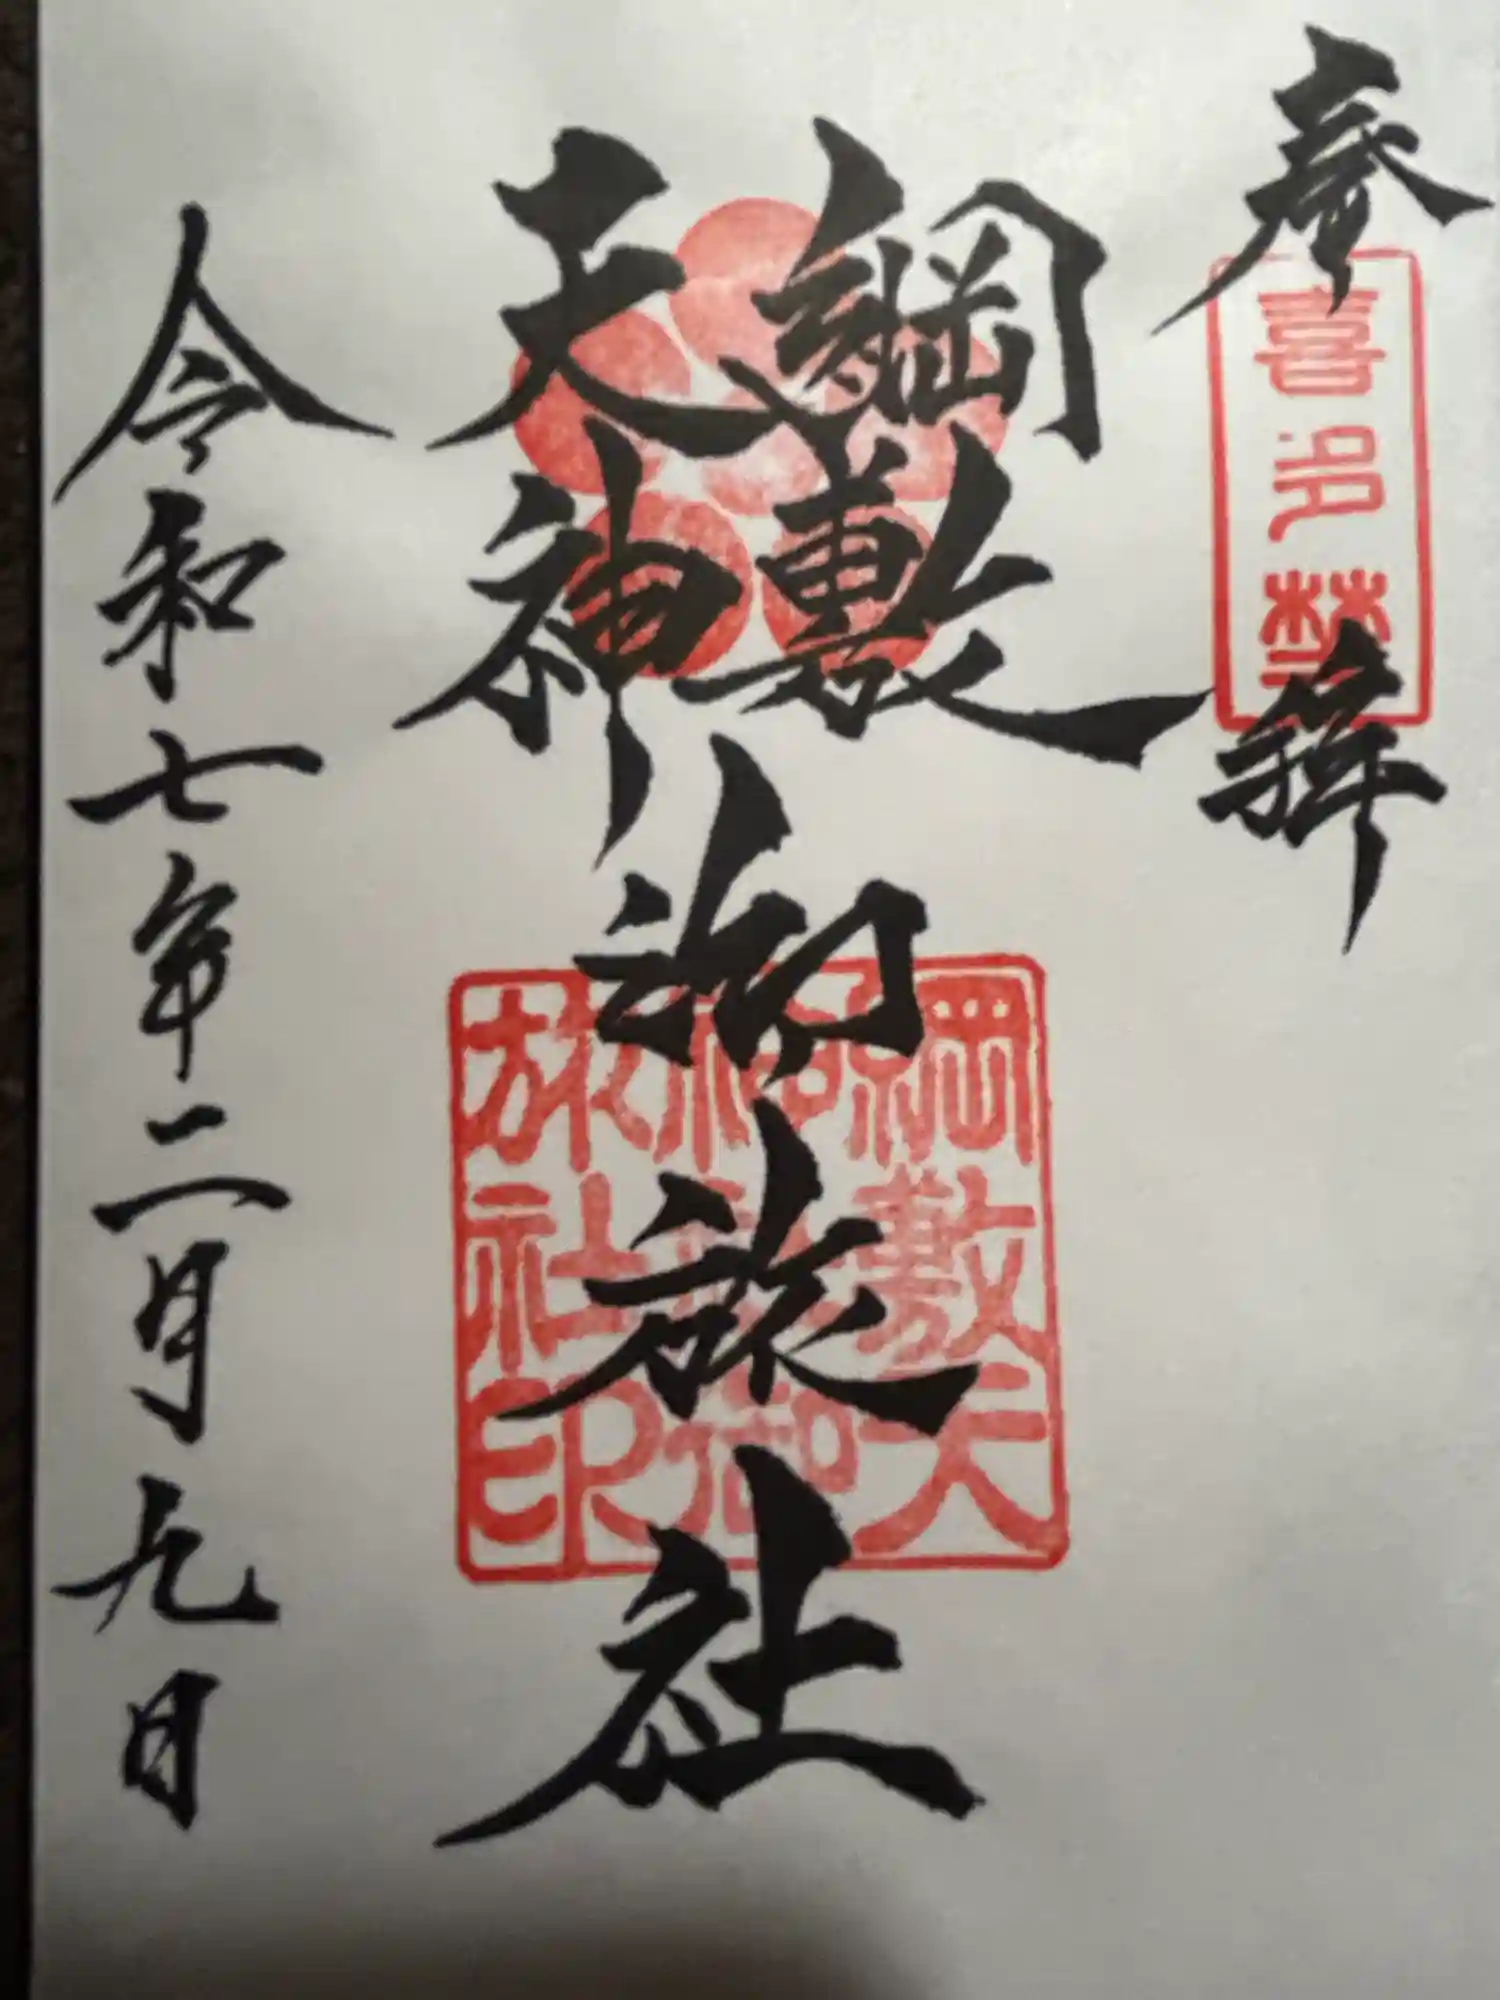 参拝
喜多埜
綱敷
天神
御旅社
綱敷天
神社御
旅社印
令和七年二月九日